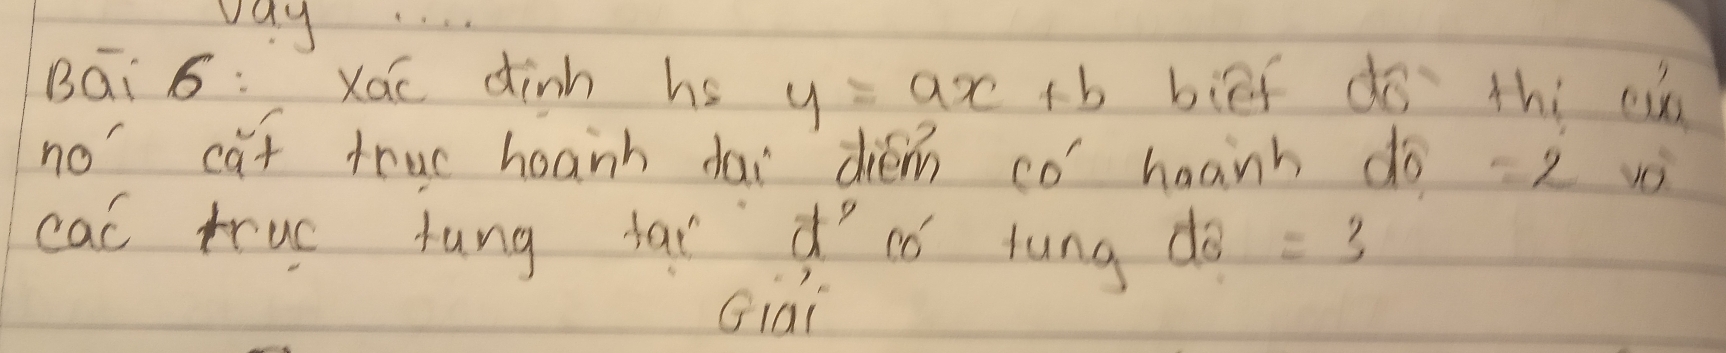 Vậy ....
Bài 6: Xác định hs y = ax + b biết đồ thị của
nó cắt trục hoành tại điểm có hoành độ = 2 và
các trục tung tại đ' có tung độ = 3
Giải